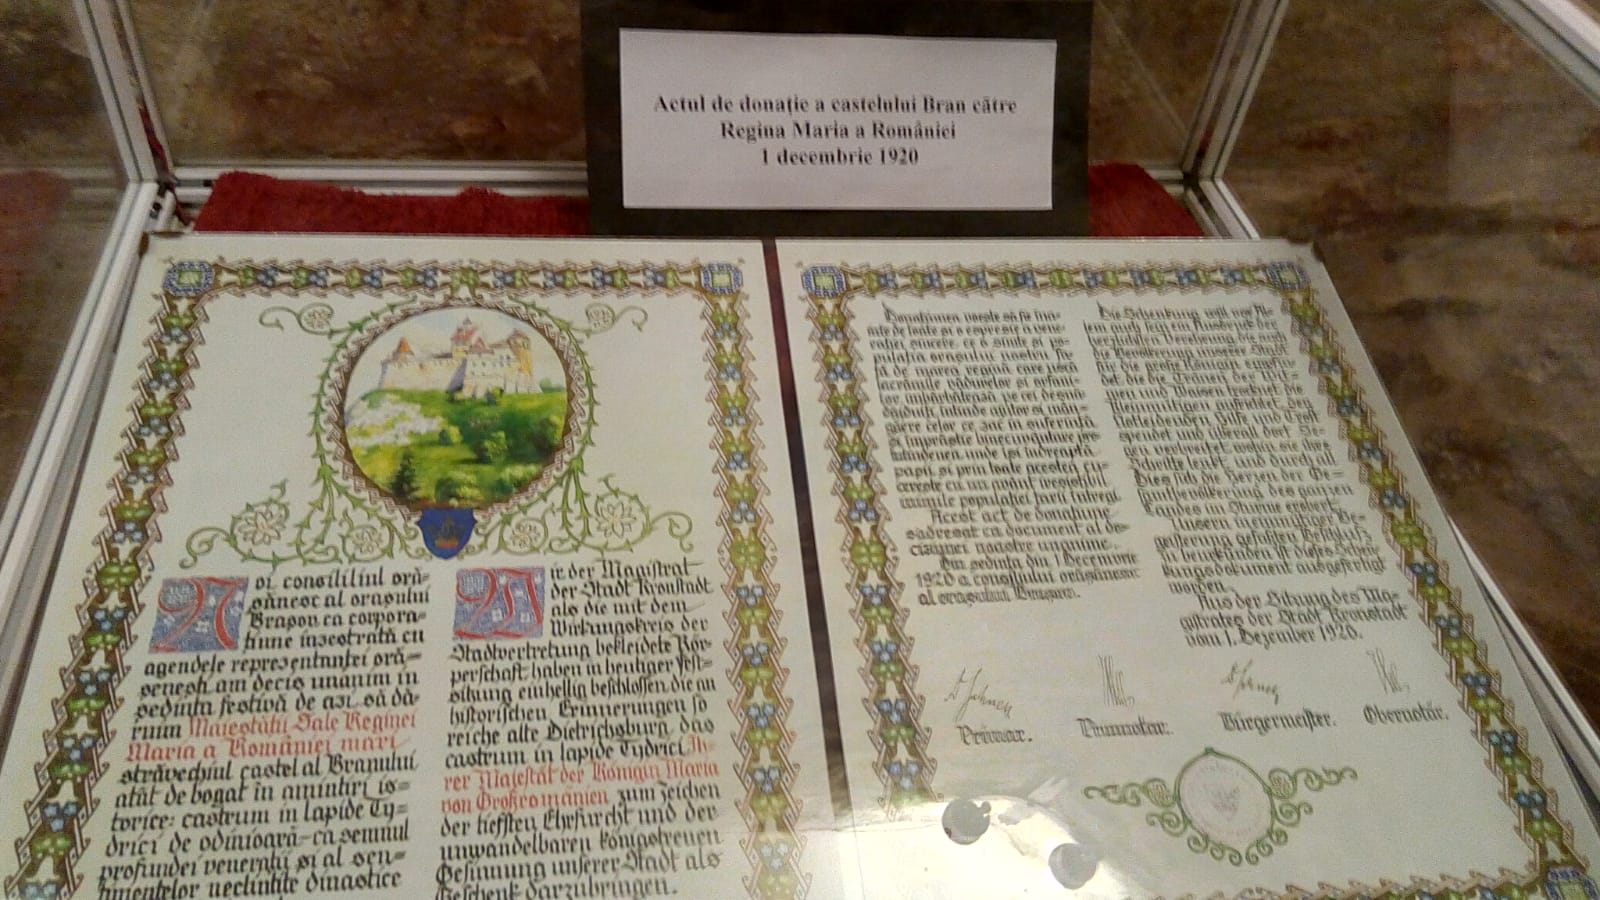 Actul de donație a castelului Bran către
Regina Maria a României
1 decembrie 1920
Noi consililiul oră-
șănesc al orașului
Brașov, ca corpora-
țiune înzestrată cu
agendele reprezentanței oră-
șenești, am decis unanim în
ședința festivă de azi, să dă-
ruim Majestății Sale Reginei
Maria a României mari
străvechiul castel al Branului
atât de bogat în amintiri is-
torice: castrum in lapide Ty-
drici de odinioară - ca semnul
profundei venerații și al sen-
timentelor neclintite dinastice
Wir der Magistrat
der Stadt Kronstadt
als die mit dem
Wirkungskreis der
Stadtvertretung bekleidete Kör-
perschaft haben in heutiger Fest-
sitzung einhellig beschlossen, die an
historischen Erinnerungen so
reiche alte Dietrichsburg, das
castrum in lapide Tydrici, Ih-
rer Majestät der Königin Maria
von Großromänien zum Zeichen
der tiefsten Ehrfurcht und der
unwandelbaren königstreuen
Gesinnung unserer Stadt als
Geschenk darzubringen.
Donațiunea voește să fie îna-
inte de toate și o expresie a vene-
rației sincere, ce o simte și po-
pulația orașului nostru fa-
ță de marea regină care uscă
lacrămile văduvelor și orfani-
lor, îmbărbătează pe cei desnă-
dăjduiți, întinde ajutor și mân-
gâiere celor ce zac în suferință
și împrăștie binecuvântare pre-
tutindenea unde își îndreaptă
pașii și prin toate acestea cu-
cerește cu un avânt irezistibil
inimile populației țării întregi.
Acest act de donațiune
s'a dresat ca document al de-
ciziunei noastre unanime.
Din ședința din 1 Decemvrie
1920 a consiliului orășănesc
al orașului Brașov.
Die Schenkung will vor Al-
lem auch sein ein Ausdruck der
herzlichsten Verehrung, die auch
die Bevölkerung unserer Stadt
für die große Königin empfin-
det, die die Tränen der Wit-
wen und Waisen trocknet, die
Kleinmütigen aufrichtet, den
Notleidenden Hilfe und Trost
spendet und überall dort Se-
gen verbreitet, wohin sie ihre
Schritte lenkt, und durch all
Dies sich die Herzen der Ge-
samtbevölkerung des ganzen
Landes im Sturme erobert.
Unsern in einmütiger Be-
geisterung gefaßten Beschluß
zu beurkunden ist dieses Schen-
kungsdokument ausgefertigt
worden.
Aus der Sitzung des Ma-
gistrates der Stadt Kronstadt
vom 1. Dezember 1920.
Primar.
Primnotar.
Bürgermeister.
Obernotär.